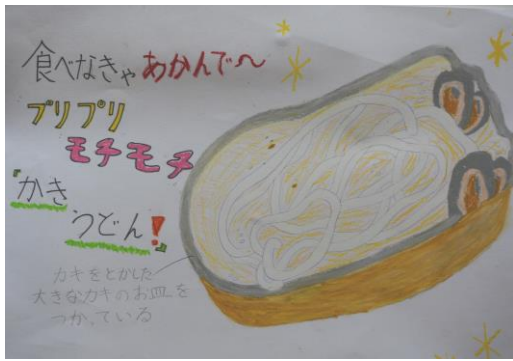 食べなきゃあかんで〜
プリプリ
モチモチ
「かき
うどん!」
カキをとかした
大きなカキのお皿を
つかっている